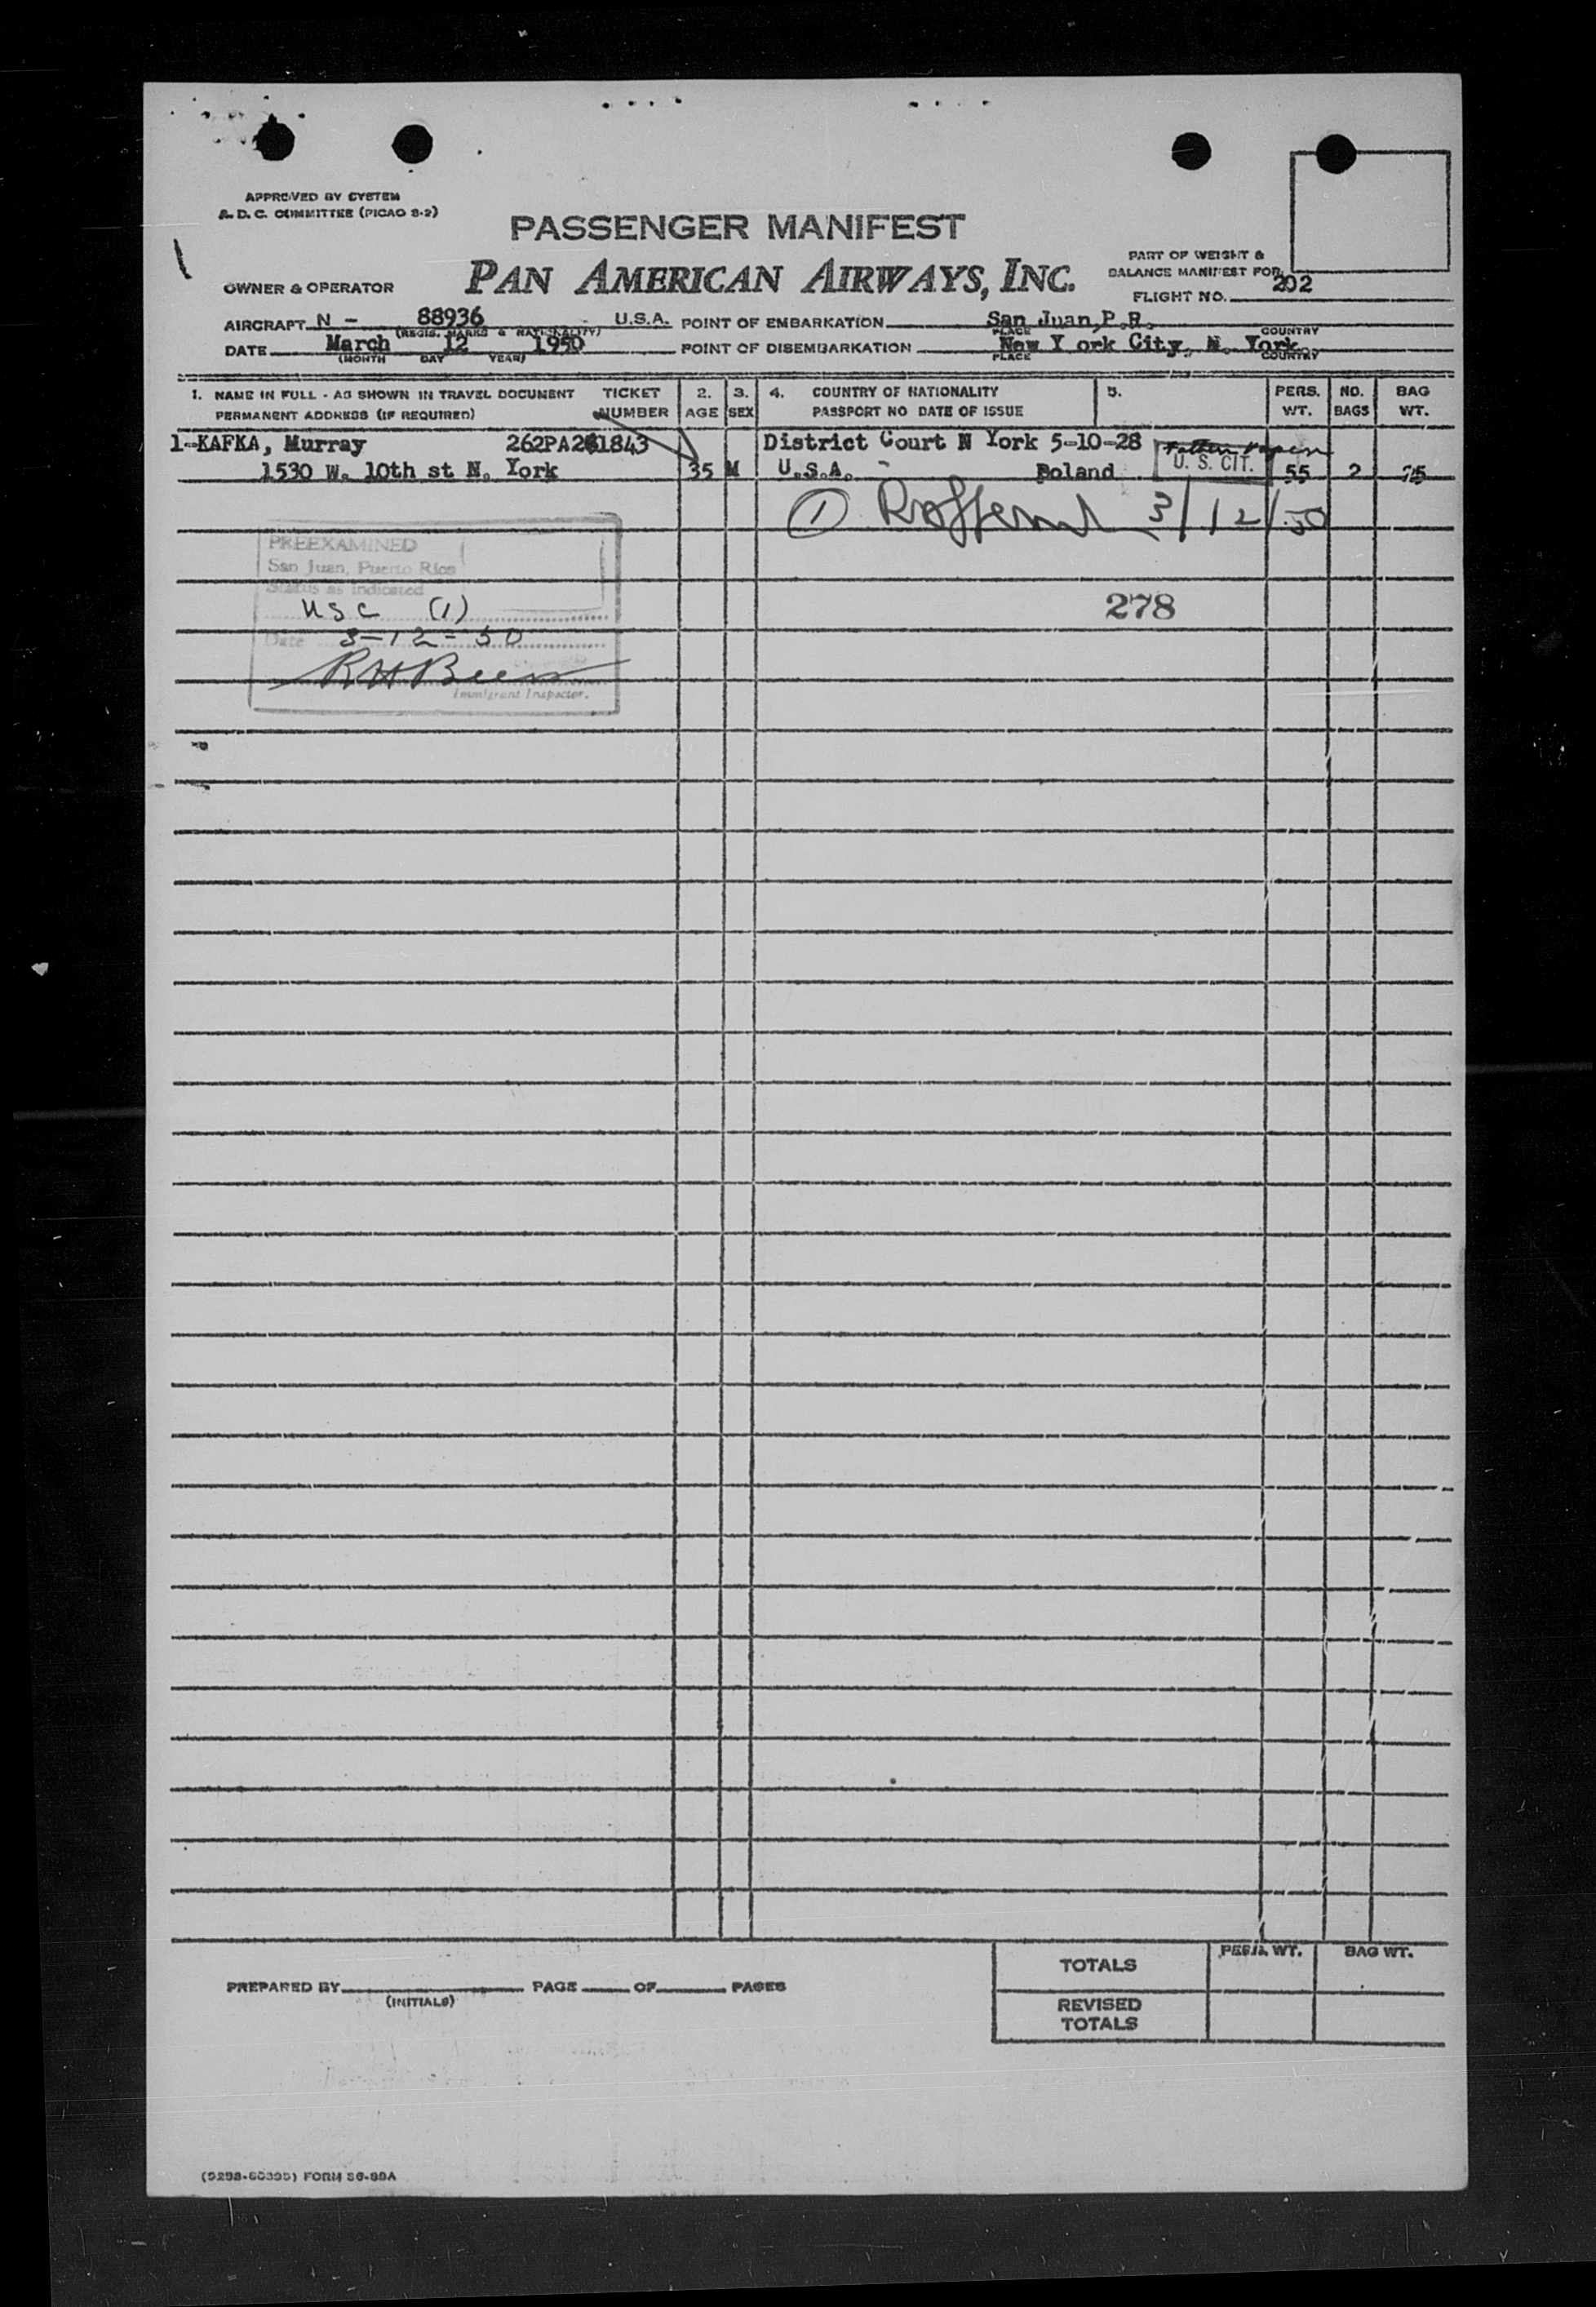 APPROVED BY SYSTEM
A. D. C. COMMITTEE (PICAO S-2)
PASSENGER MANIFEST
PART OF WEIGHT &
BALANCE MANIFEST FOR
OWNER & OPERATOR PAN AMERICAN AIRWAYS, INC.
FLIGHT NO. 202
AIRCRAFT N - 88936 U.S.A. POINT OF EMBARKATION San Juan, P.R.
(REGIS. MARKS & NATIONALITY) PLACE COUNTRY
DATE March 12 1950 POINT OF DISEMBARKATION New Y ork City, N. York
(MONTH DAY YEAR) PLACE COUNTRY
1. NAME IN FULL - AS SHOWN IN TRAVEL DOCUMENT TICKET 2. 3. 4. COUNTRY OF NATIONALITY 5. PERS. NO. BAG
PERMANENT ADDRESS (IF REQUIRED) NUMBER AGE SEX PASSPORT NO DATE OF ISSUE WT. BAGS WT.
1-KAFKA, Murray 262PA261843 District Court N York 5-10-28
1530 W. 10th st N. York 35 M U.S.A. - Poland U. S. CIT. 55 2
① 3/12/50
PREEXAMINED
San Juan, Puerto Rico
Status as indicated
USC (1)
278
Date 3-12-50
Immigrant Inspector.
TOTALS PERS. WT. BAG WT.
PREPARED BY PAGE OF PAGES
(INITIALS)
REVISED
TOTALS
FORM